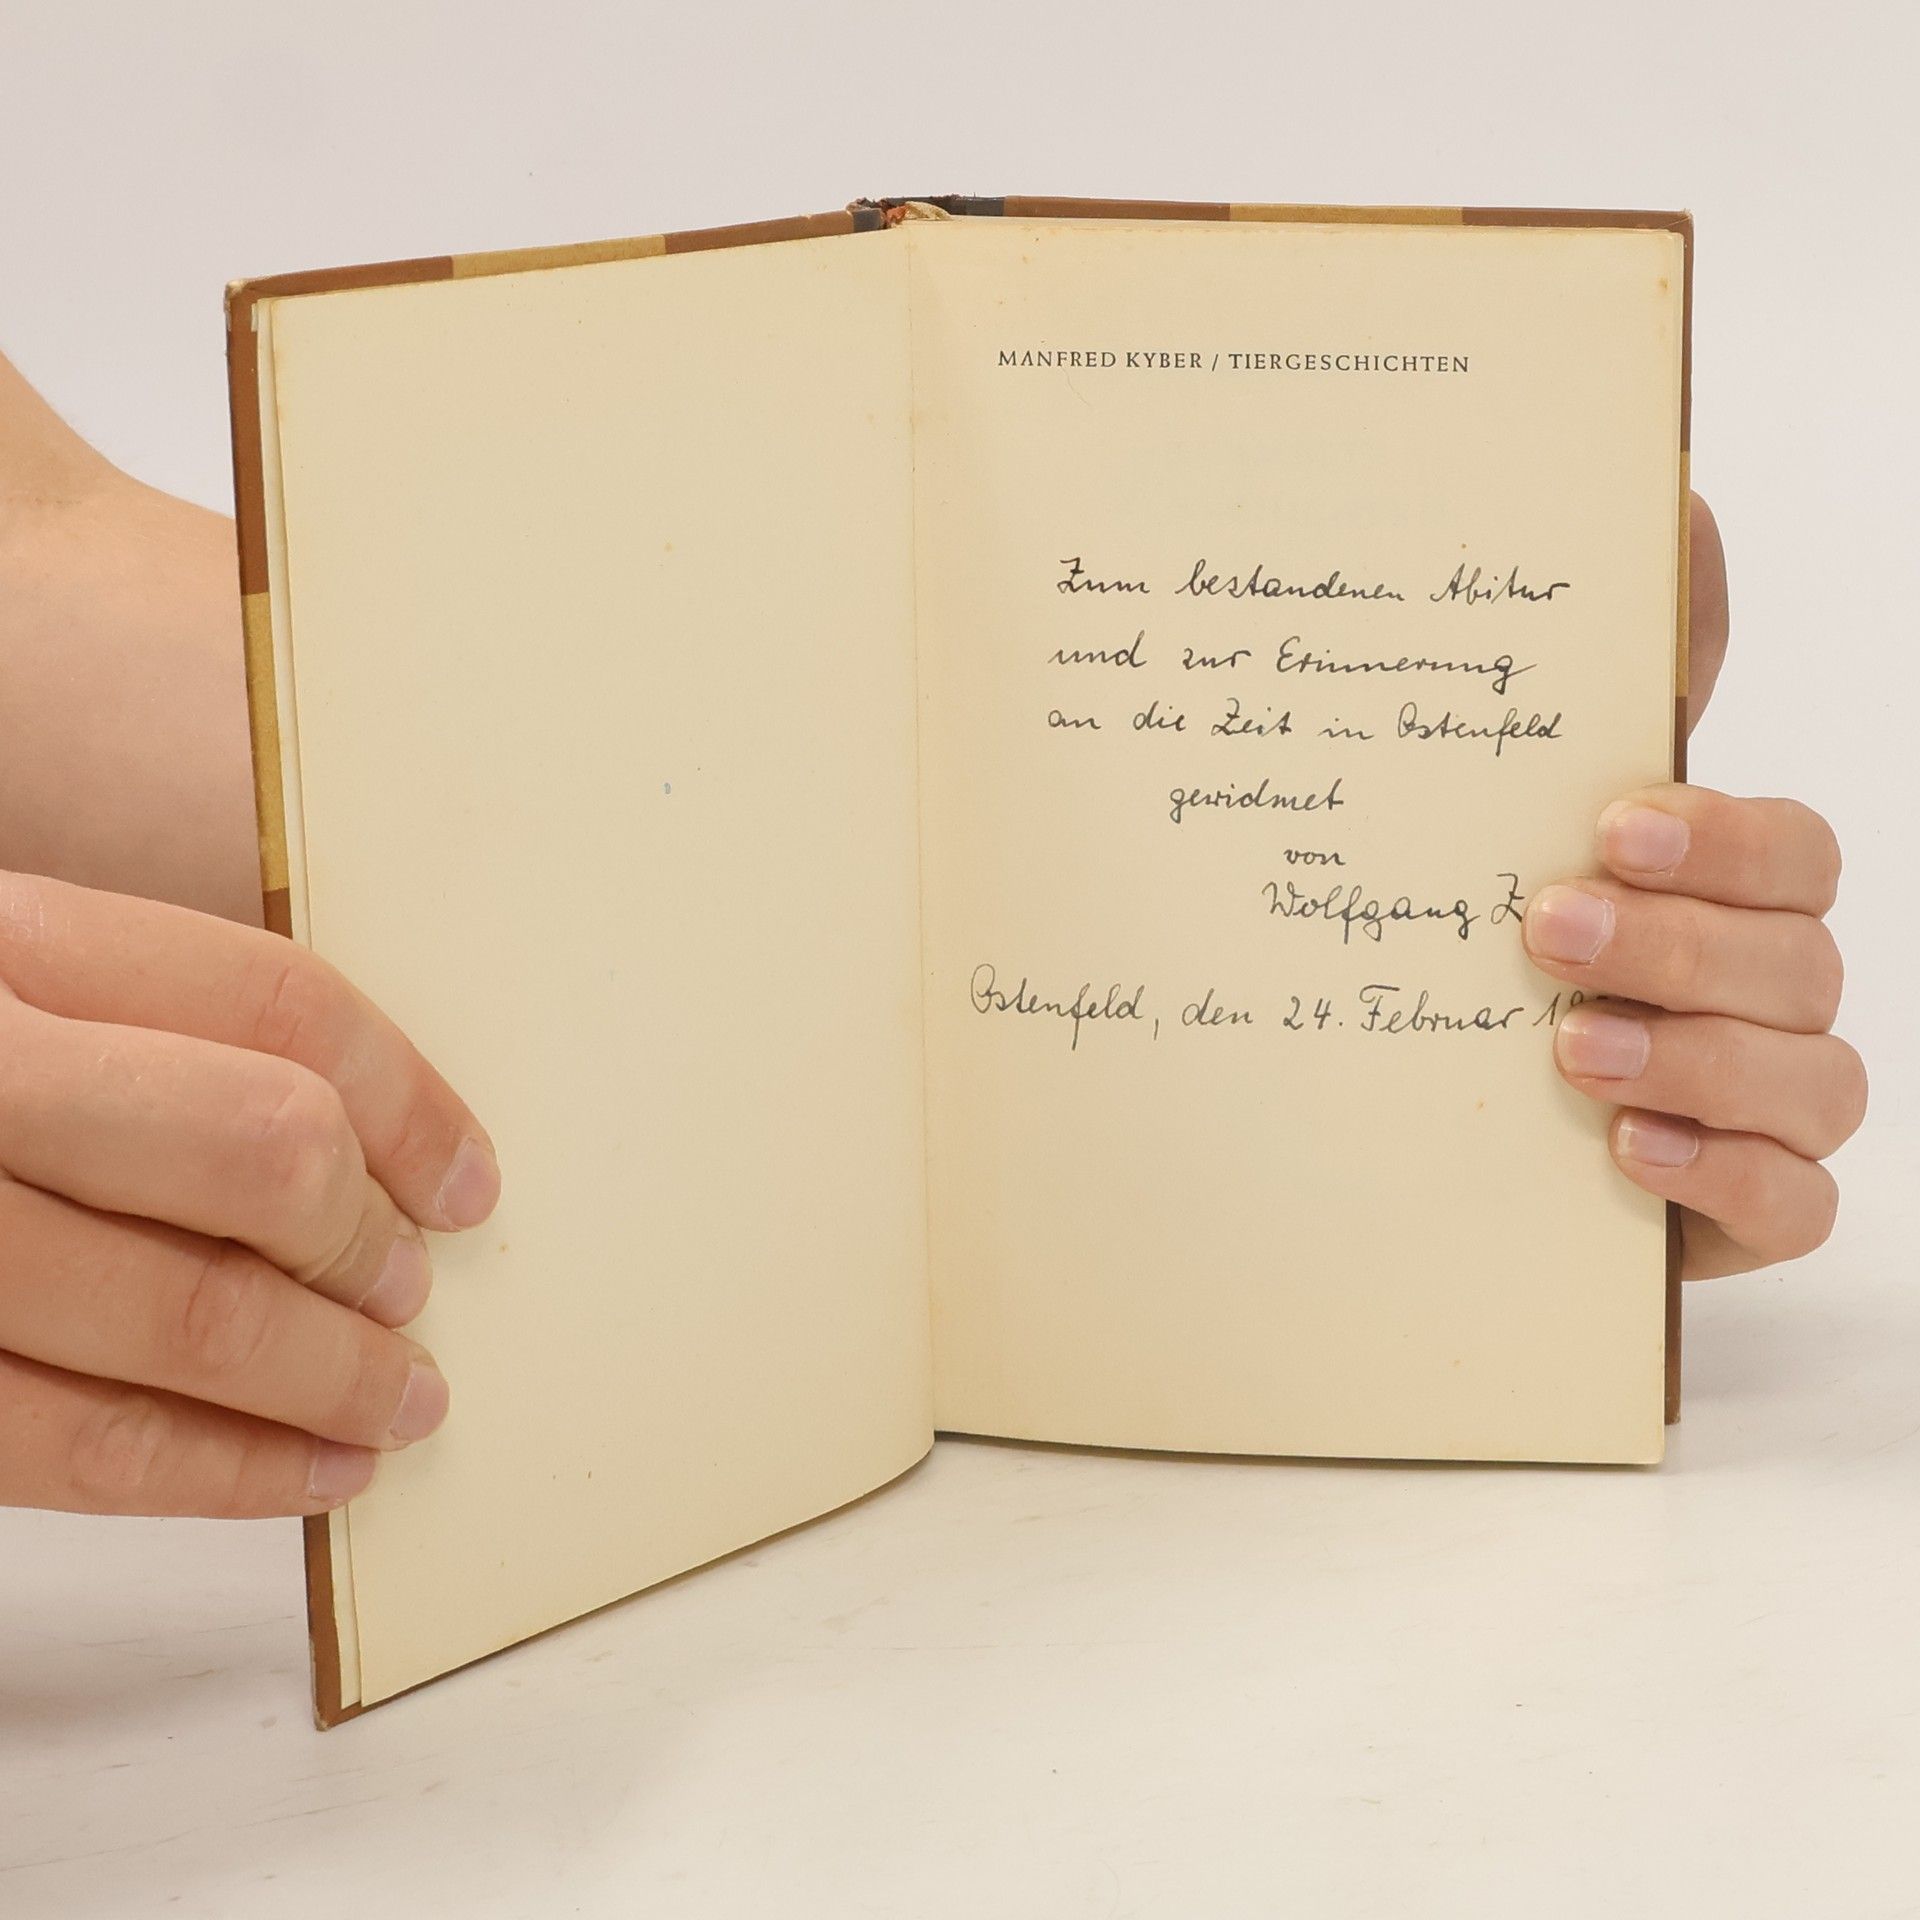 MANFRED KYBER / TIERGESCHICHTEN
Zum bestandenen Abitur
und zur Erinnerung
an die Zeit in Ostenfeld
gewidmet
von
Wolfgang Z
Ostenfeld, den 24. Februar